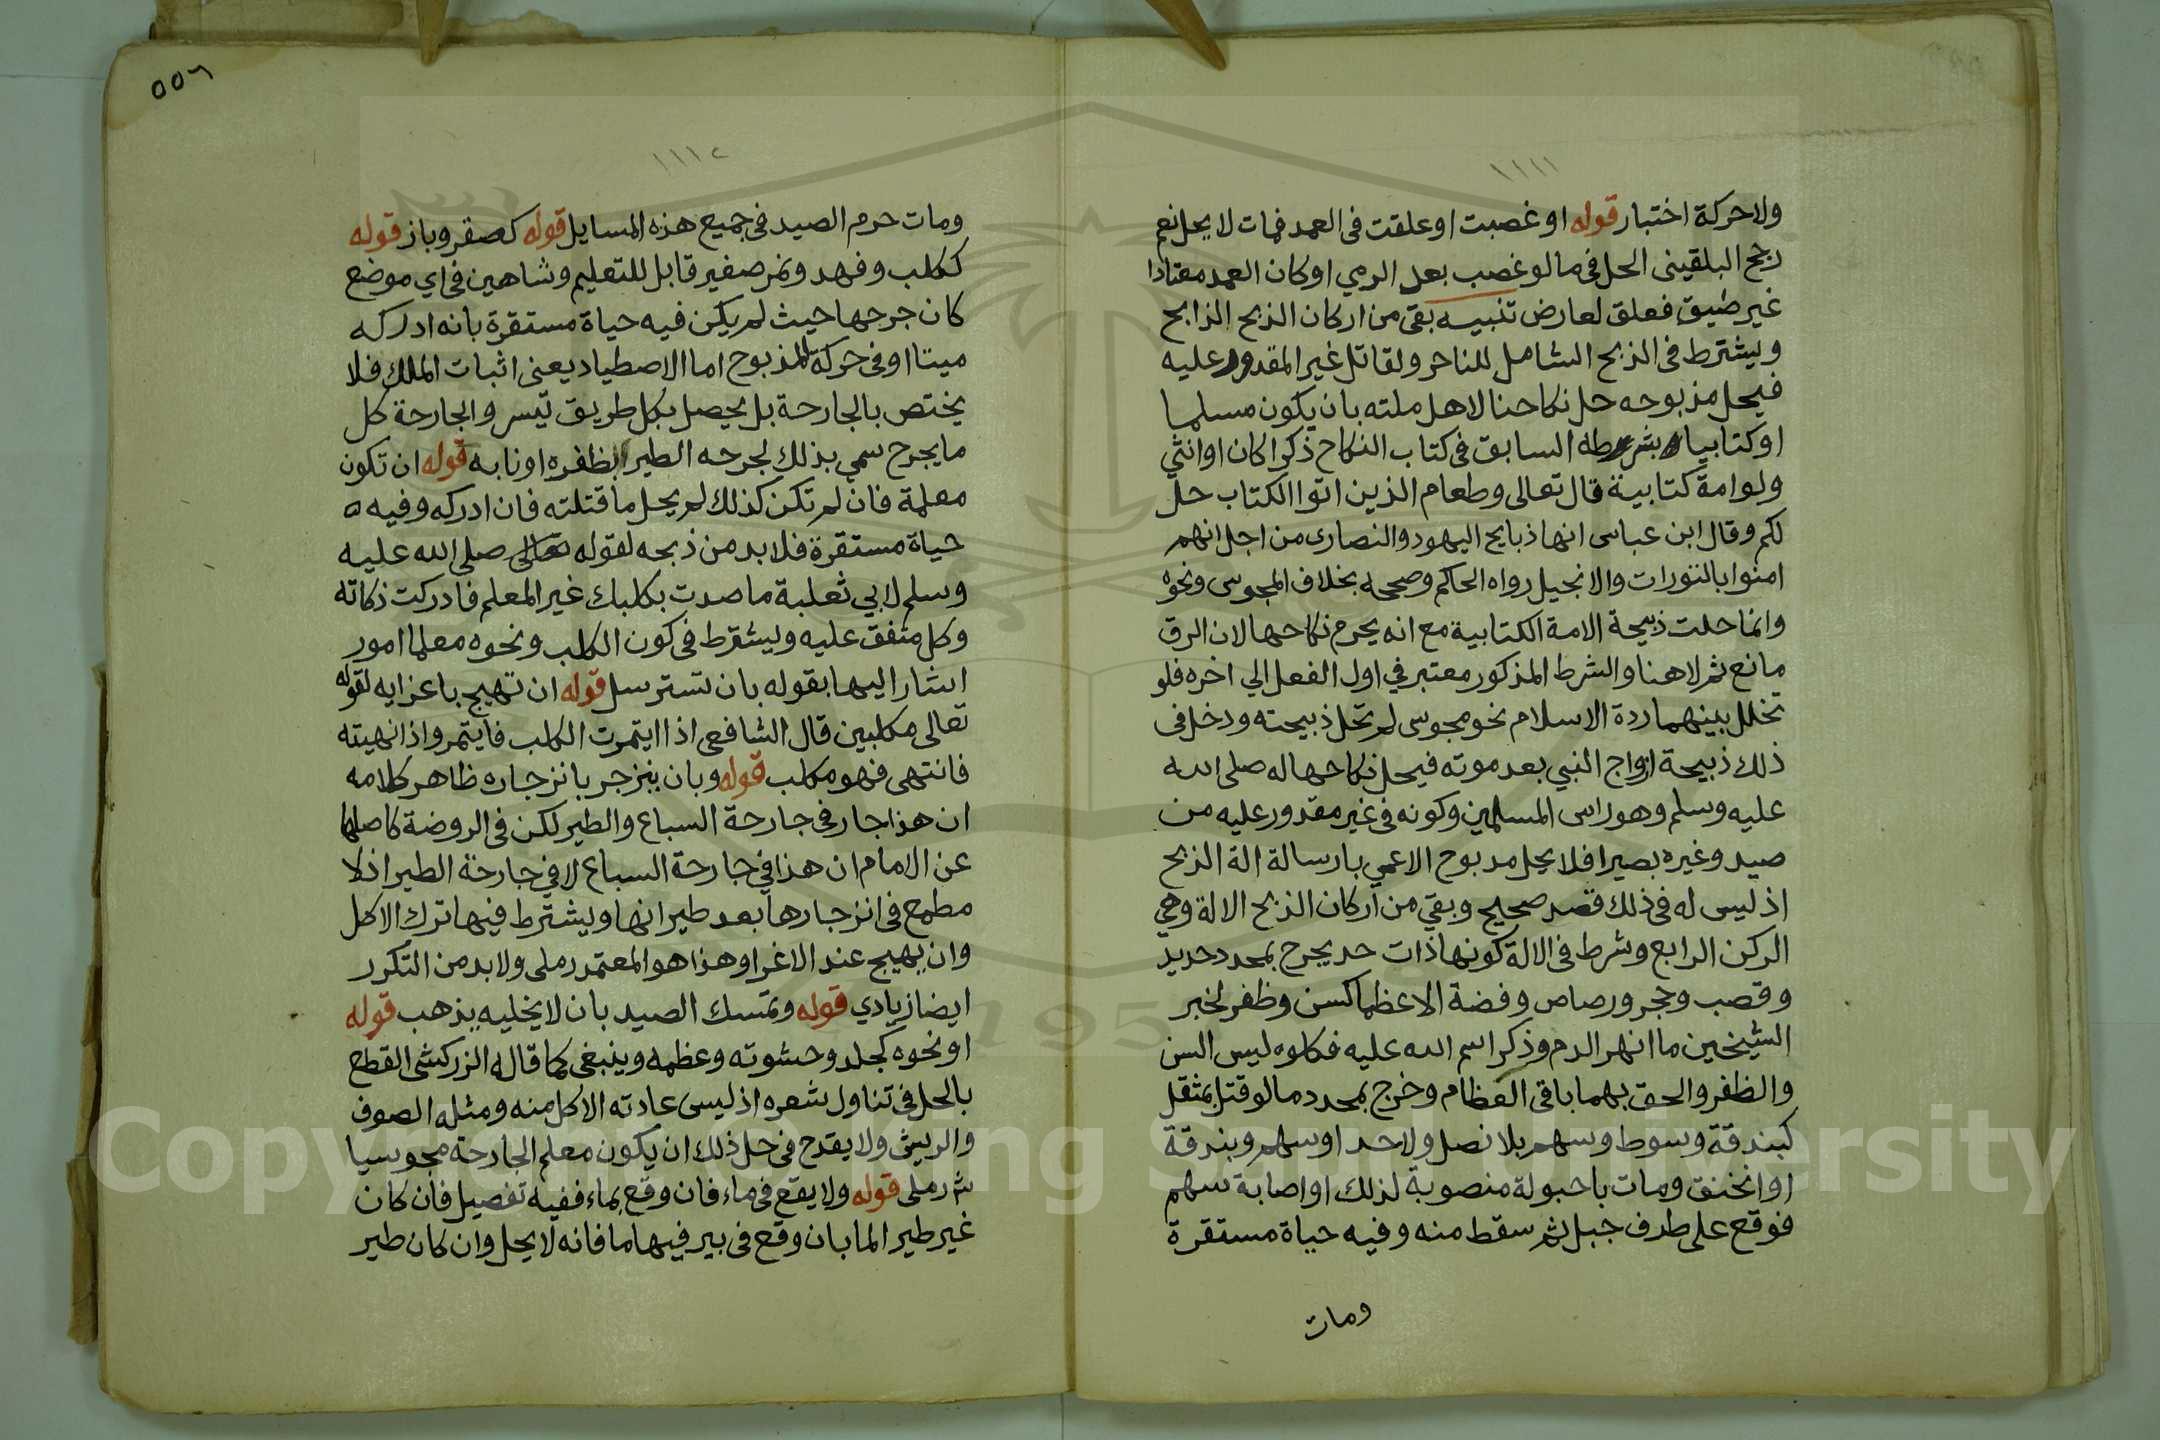 ١١١١
ولا حركة اختبار قوله او غصبت او علقت في العمد فمات لا يحل نعم
رجح البلقيني الحل في ما لو غصب بعد الرمي او كان العمد معتادا
غير ضيق فعلق لعارض تنبيه بقي من اركان الذبح الذابح
ويشترط في الذبح الشامل للناحر ولقاتل غير المقدور عليه
فيحل مذبوحه حل نكاحنا لاهل ملته بان يكون مسلما
او كتابيا بشرطه السابق في كتاب النكاح ذكرا كان او انثي
ولو امة كتابية قال تعالى وطعام الذين اتوا الكتاب حل
لكم وقال ابن عباس انها ذبايح اليهود والنصارى من اجل انهم
امنوا بالتورات والانجيل رواه الحاكم وصححه بخلاف المجوسى ونحوه
وانما حلت ذبيحة الامة الكتابية مع انه يحرم نكاحها لان الرق
مانع ثم لا هنا والشرط المذكور معتبر في اول الفعل الي اخره فلو
تخلل بينهما ردة الاسلام نحو مجوسى لم تحل ذبيحته ودخل في
ذلك ذبيحة ازواج النبي بعد موته فيحل نكاحها له صلى الله
عليه وسلم وهو راس المسلمين وكونه في غير مقدور عليه من
صيد وغيره بصيرا فلا يحل مدبوح الاعمي بارسالة الة الذبح
اذ ليس له في ذلك قصد صحيح وبقي من اركان الذبح الالة وهي
الركن الرابع وشرط في الالة كونها ذات حد يجرح بمحدد حديد
وقصب وحجر ورصاص وفضة الا عظما كسن وظفر لخبر
الشيخين ما انهر الدم وذكر اسم الله عليه فكلوه ليس السن
والظفر والحق بهما باقي العظام وخرج بمحدد ما لو قتل بمثقل
كبندقة وسوط وسهم بلا نصل ولا حد او سهم وبندقة
او انخنق ومات باحبولة منصوبة لذلك او اصابة سهم
فوقع على طرف جبل ثم سقط منه وفيه حياة مستقرة
ومات
٥٥٦
١١١٢
ومات حرم الصيد في جميع هذه المسايل قوله كصقر وباز قوله
ككلب وفهد ونمر صغير قابل للتعليم وشاهين في اي موضع
كان جرحها حيث لم يكن فيه حياة مستقرة بانه ادركه
ميتا او في حركة المذبوح اما الاصطياد يعني اثبات الملك فلا
يختص بالجارحة بل يحصل بكل طريق تيسر والجارحة كل
ما يجرح سمي بذلك لجرحه الطير بظفره او نابه قوله ان تكون
معلمة فان لم تكن كذلك لم يحل ما قتلته فان ادركه وفيه ه
حياة مستقرة فلا بد من ذبحه لقوله تعالى صلى الله عليه
وسلم لابي ثعلبة ما صدت بكلبك غير المعلم فادركت ذكاته
وكل متفق عليه ويشترط في كون الكلب ونحوه معلما امور
اشار اليها بقوله بان تسترسل قوله ان تهيج باعزايه لقوله
تعالى مكلبين قال الشافعي اذا ايتمرت الكلب فايتمر واذا نهيته
فانتهى فهو مكلب قوله وبان ينزجر بانزجاره ظاهر كلامه
ان هذا جار في جارحة السباع والطير لكن في الروضة كاصلها
عن الامام ان هذا في جارحة السباع لا في جارحة الطير اذ لا
مطمع في انزجارها بعد طيرانها ويشترط فيها ترك الاكل
وان يهيج عند الاغرا وهذا هو المعتمد رملى ولا بد من التكرر
ايضا زيادي قوله وتمسك الصيد بان لا يخليه يذهب قوله
او نحوه كجلد وحشوته وعظمه وينبغى كما قاله الزركشى القطع
بالحل في تناول شعره اذ ليس عادته الاكل منه ومثله الصوف
والريش ولا يقدح في حل ذلك ان يكون معلم الجارحة مجوسيا
ش رملى قوله ولا يقع في ماء فان وقع بماء ففيه تفصيل فان كان
غير طير الما بان وقع في بير فيها ما فانه لا يحل وان كان طير
Copyright © King Saud University
1957